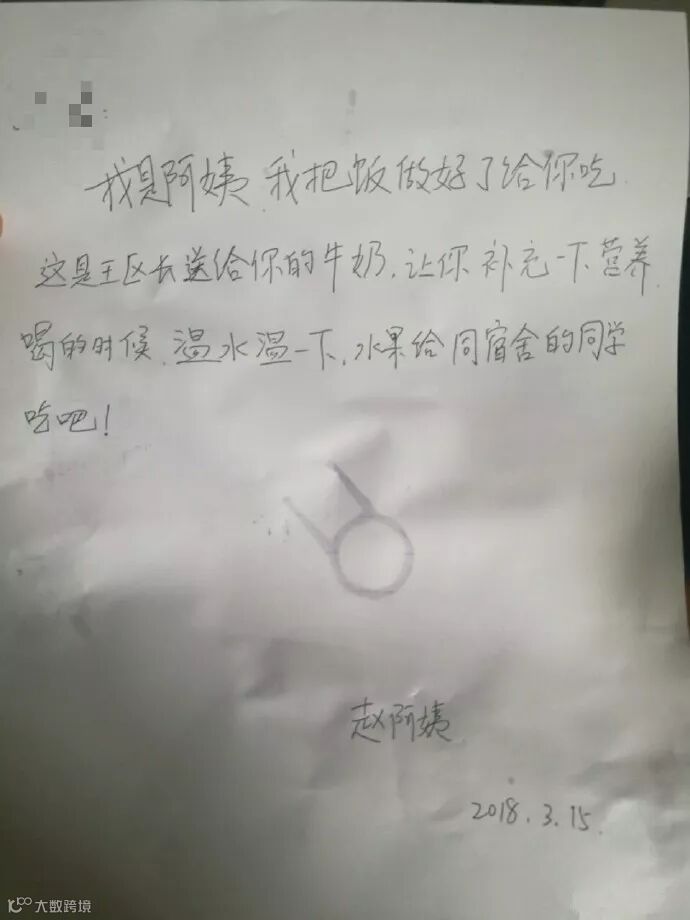 我是阿姨 我把饭做好了给你吃
这是王区长送给你的牛奶,让你补充一下营养
喝的时候,温水温一下,水果给同宿舍的同学
吃吧!
赵阿姨
2018.3.15.
大数跨境